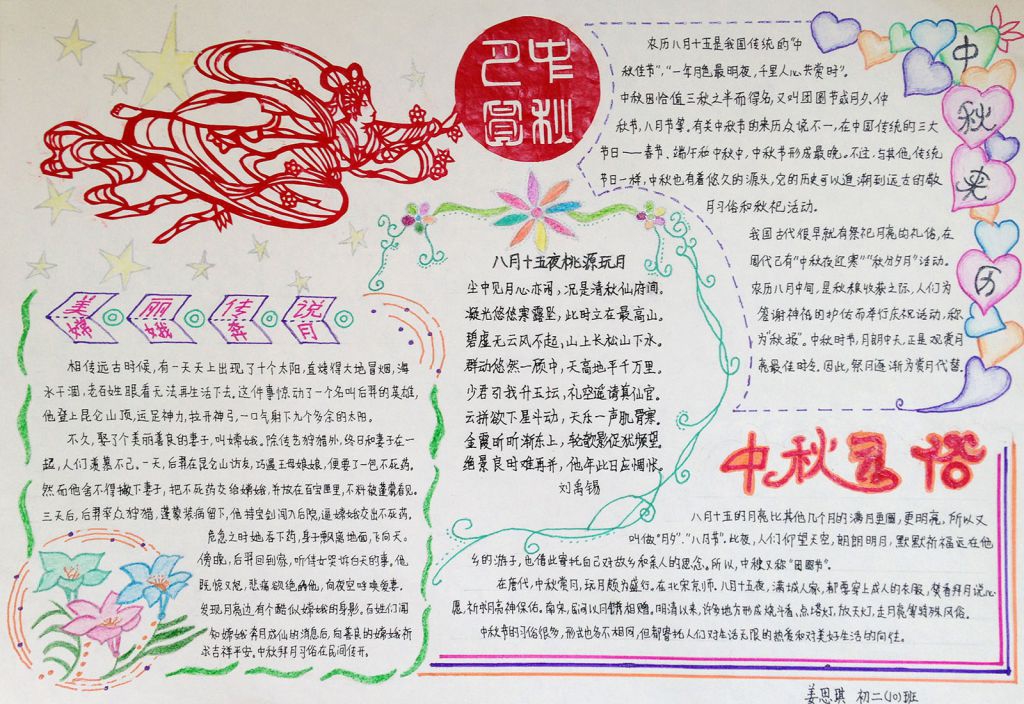 中秋
巴賞
中秋来历
农历八月十五是我国传统的“中
秋佳节”,“一年月色最明夜,千里人心共赏时”。
中秋因恰值三秋之半而得名,又叫团圆节或月夕、仲
秋节,八月节等。有关中秋节的来历众说不一,在中国传统的三大
节日——春节、端午和中秋中,中秋节形成最晚。不过,与其他传统
节日一样,中秋也有着悠久的源头,它的历史可以追溯到远古的敬
月习俗和秋祀活动。
我国古代很早就有祭祀月亮的礼俗,在
周代已有“中秋夜迎寒”“秋分夕月”活动。
农历八月中旬,是秋粮收募之际,人们为
答谢神佑的护佑而举行庆祝活动,称
为“秋报”。中秋时节,月朗中天,正是观赏月
亮最佳时令。因此,祭月逐渐为赏月代替。
八月十五夜桃源玩月
尘中见月心亦闲,况是清秋仙府间。
凝光悠悠寒露坠,此时立在最高山。
碧虚无云风不起,山上长松山下水。
群动悠然一顾中,天高地平千万里。
少君引我升玉坛,礼空遥请真仙官。
云拼欲下星斗动,天乐一声肌骨寒。
金霞昕昕渐东上,轮敧影促犹频望。
绝景良时难再并,他年此日应惆怅。
刘禹锡
美丽传说
嫦娥奔月
相传远古时候,有一天天上出现了十个太阳,直烤得大地冒烟,海
水干涸,老百姓眼看无法再生活下去。这件事惊动了一个名叫后羿的英雄,
他登上昆仑山顶,运足神力,拉开神弓,一口气射下九个多余的太阳。
不久,娶了个美丽善良的妻子,叫嫦娥。除传艺狩猎外,终日和妻子在一
起,人们羡慕不已。一天,后羿在昆仑山访友,巧遇王母娘娘,便要了一包不死药。
然而他舍不得撇下妻子,把不死药交给嫦娥,并放在百宝匣里,不料被蓬蒙看见。
三天后,后羿率众狩猎,蓬蒙装病留下,他持宝剑闯入后院,逼嫦娥交出不死药。
危急之时她吞下药,身子飘离地面,飞向天。
傍晚,后羿回到家,听侍女哭诉白天的事,他
既惊又怒,悲痛欲绝的他,向夜空呼唤爱妻。
发现月亮边有个酷似嫦娥的身影。百姓们闻
知嫦娥奔月成仙的消息后,向善良的嫦娥祈
求吉祥平安。中秋拜月习俗在民间传开。
中秋习俗
八月十五的月亮比其他几个月的满月更圆,更明亮,所以又
叫做“月夕”、“八月节”。此夜,人们仰望天空,朗朗明月,默默祈福远在他
乡的游子,也借此寄托自己对故乡和亲人的思念。所以,中秋又称“团圆节”。
在唐代,中秋赏月,玩月颇为盛行。在北宋京师,八月十五夜,满城人家,都要穿上成人的衣服,焚香拜月说心
愿,祈求月亮神保佑。南宋,民间以月饼相赠。明清以来,许多地方形成烧斗香,点塔灯,放天灯,走月亮等特殊风俗。
中秋节的习俗很多,形式也各不相同,但都寄托人们对生活无限的热爱和对美好生活的向往。
姜恩琪 初二(10)班